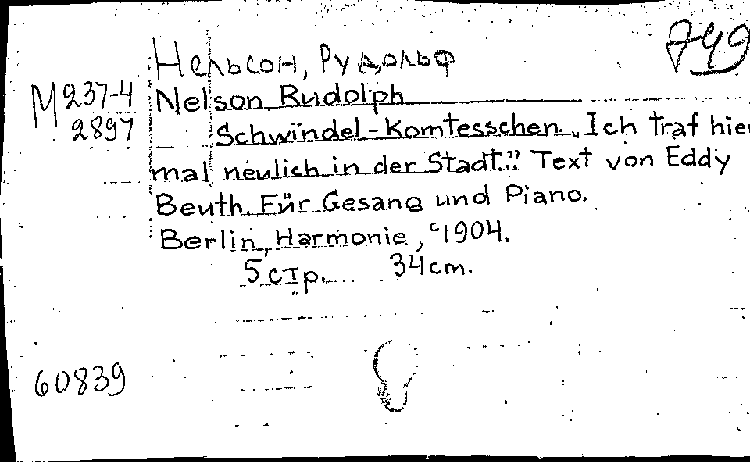 749
Нельсон, Рудольф
M 237-4 Nelson Rudolph
2897 Schwindel-Komtesschen „Ich traf hier
mal neulich in der Stadt." Text von Eddy
Beuth. Für Gesang und Piano.
Berlin, Harmonie, c1904.
5 стр. 34 cm.
60839